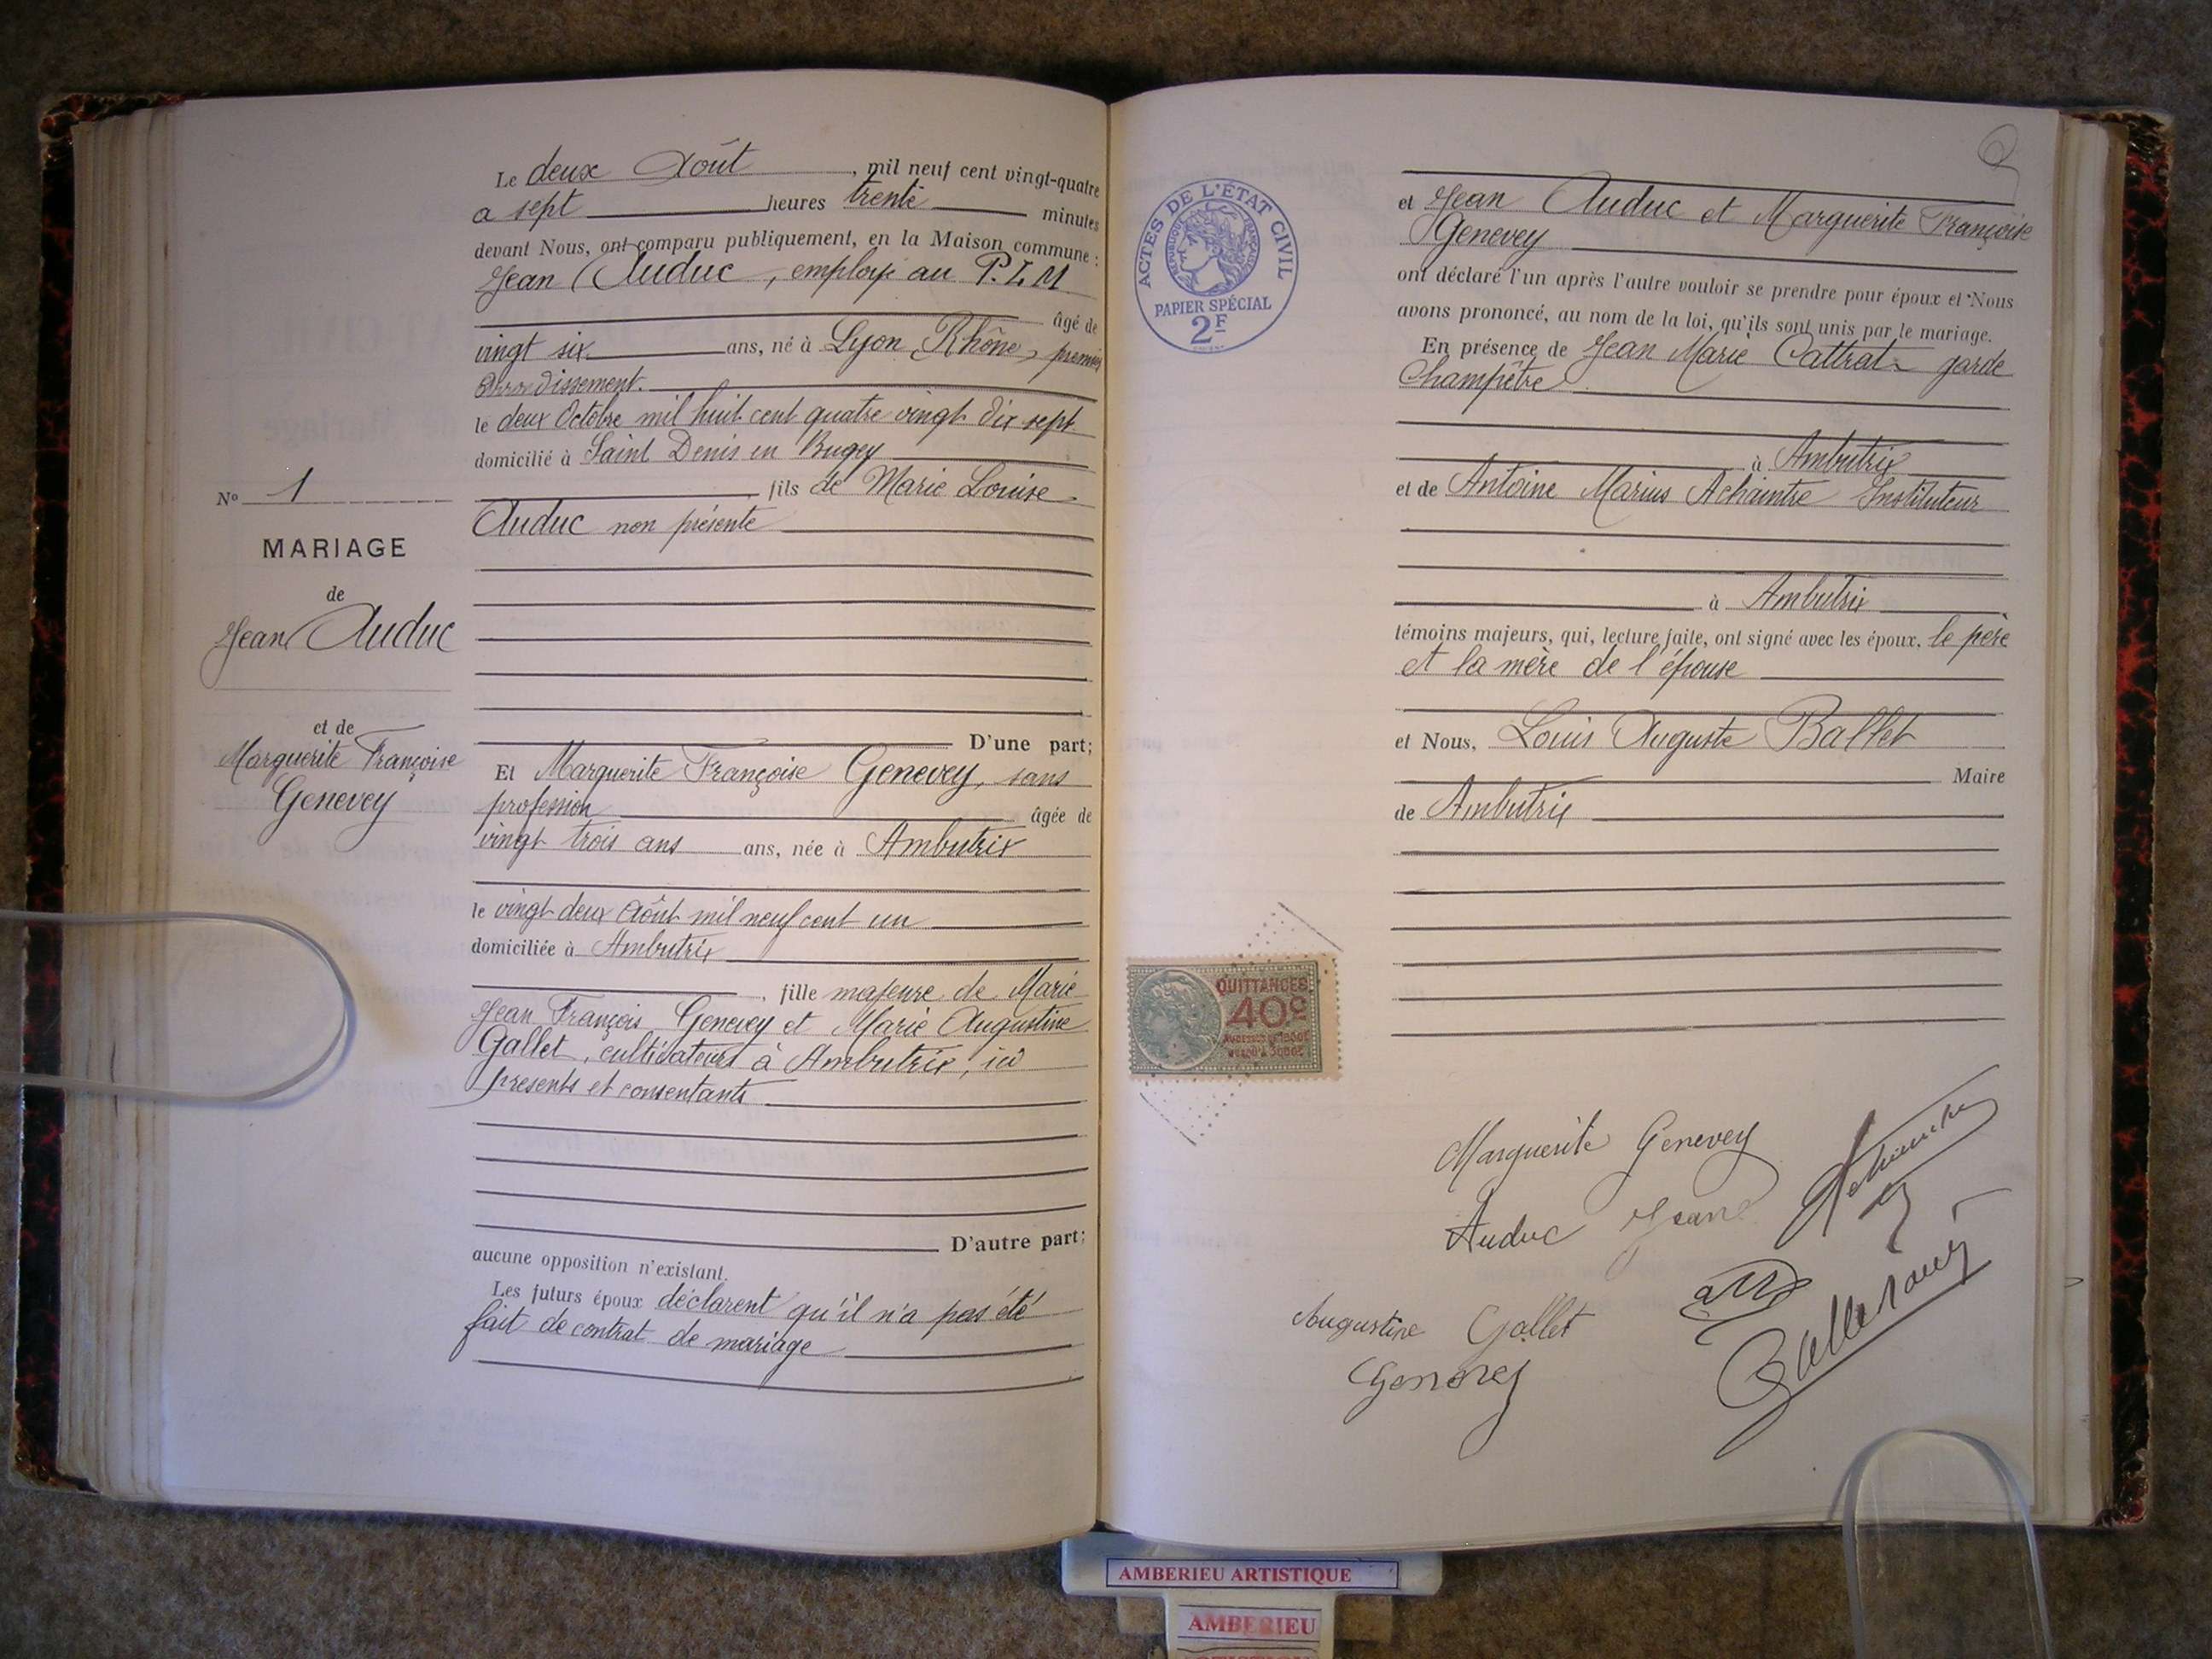 Le deux Août, mil neuf cent vingt-quatre
a sept heures trente minutes
devant Nous, ont comparu publiquement, en la Maison commune :
Jean Auduc, employé au P.L.M
âgé de
vingt six ans, né à Lyon, Rhône, premier
arrondissement.
le deux Octobre mil huit cent quatre vingt dix sept
domicilié à Saint Denis en Bugey
fils de Marie Louise
Auduc non présente
D'une part;
Et Marguerite Françoise Genevey, sans
profession âgée de
vingt trois ans ans, née à Ambutrix
le vingt deux Août mil neuf cent un
domiciliée à Ambutrix
, fille majeure de Marie
Jean François Genevey et Marie Augustine
Gallet, cultivateurs à Ambutrix, ici
présents et consentants
D'autre part;
aucune opposition n'existant.
Les futurs époux déclarent qu'il n'a pas été
fait de contrat de mariage
No 1
MARIAGE
de
Jean Auduc
et de
Marguerite Françoise
Genevey
ACTES DE L'ÉTAT CIVIL
RÉPUBLIQUE FRANÇAISE
PAPIER SPÉCIAL
2F
et Jean Auduc et Marguerite Françoise
Genevey
ont déclaré l'un après l'autre vouloir se prendre pour époux et Nous
avons prononcé, au nom de la loi, qu'ils sont unis par le mariage.
En présence de Jean Marie Cattrat garde
Champêtre
à Ambutrix
et de Antoine Marius Achaintre Instituteur
à Ambutrix
témoins majeurs, qui, lecture faite, ont signé avec les époux, le père
et la mère de l'épouse
et Nous, Louis Auguste Ballet
Maire
de Ambutrix
QUITTANCES
40c
Marguerite Genevey
Auduc Jean
Augustine Gallet
Genevey
AMBERIEU ARTISTIQUE
AMBERIEU